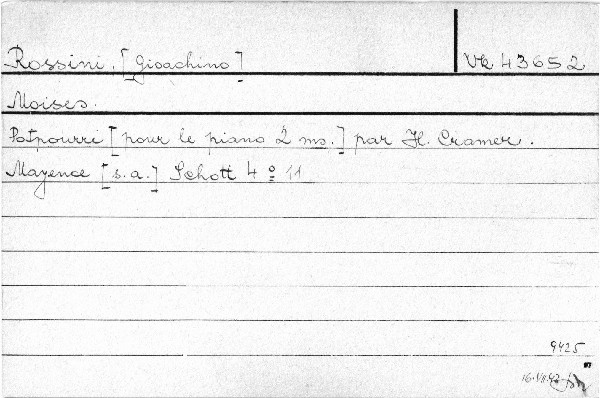 Rossini, [Gioachino] Vk 43652
Moises.
Potpourri [pour le piano 2 ms.] par H. Cramer.
Mayence [s.a.] Schott 4º 11
9425
16.VII.42